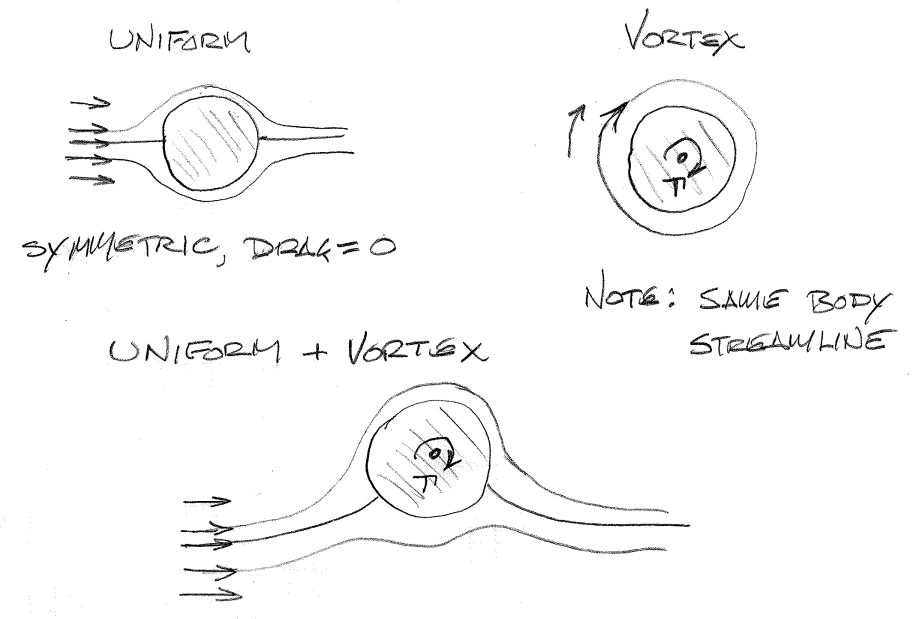 UNIFORM
VORTEX
Γ
SYMMETRIC, DRAG = 0
NOTE: SAME BODY
STREAMLINE
UNIFORM + VORTEX
Γ